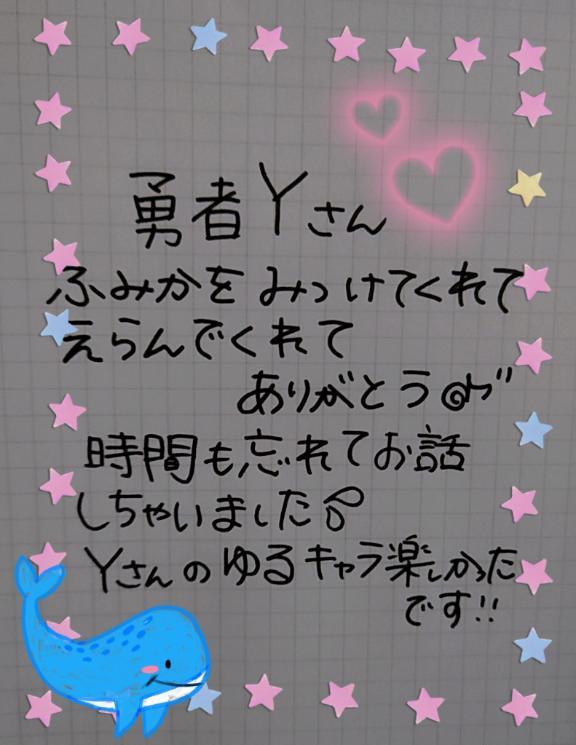 勇者Yさん
ふみかを みっけてくれて
えらんでくれて
ありがとう
時間も忘れてお話
しちゃいました
Yさんのゆるキャラ楽しかった
です!!